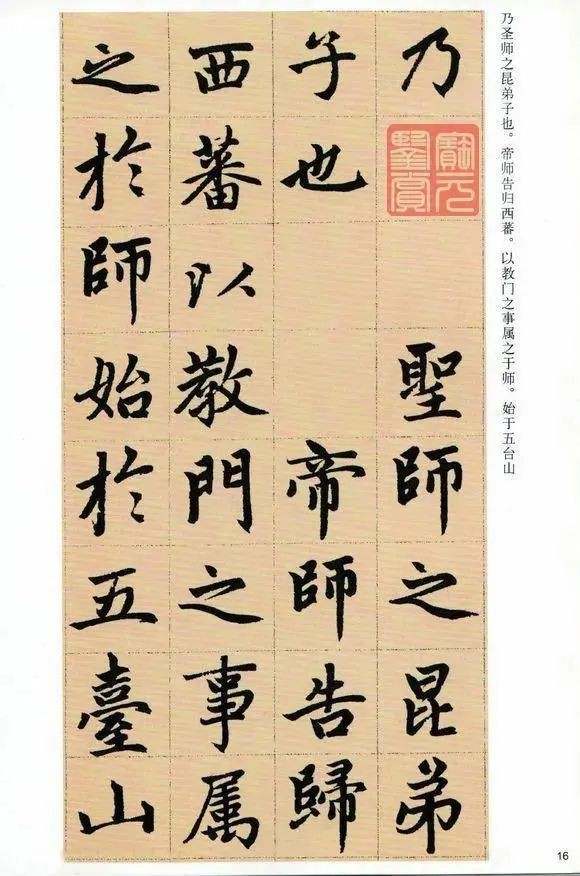 乃圣师之昆弟子也。帝师告归西蕃。以教门之事属之于师。始于五台山
乃聖師之昆弟
子也帝師告歸
西蕃以教門之事属
之於師始於五臺山
寶元
鑒賞
16